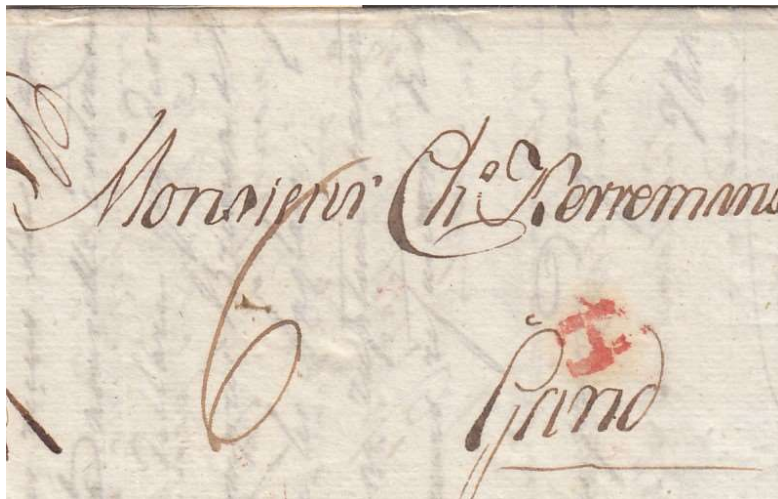 Monsieur Ch° Kerremans
6
Gand